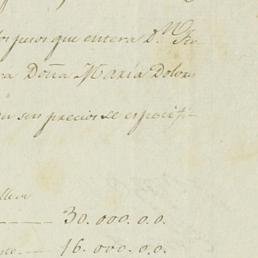 los pesos que entera D.ⁿ
ra Doña Maria Dolor
sus precios se especifi-
30.000.0.0.
16.000.0.0